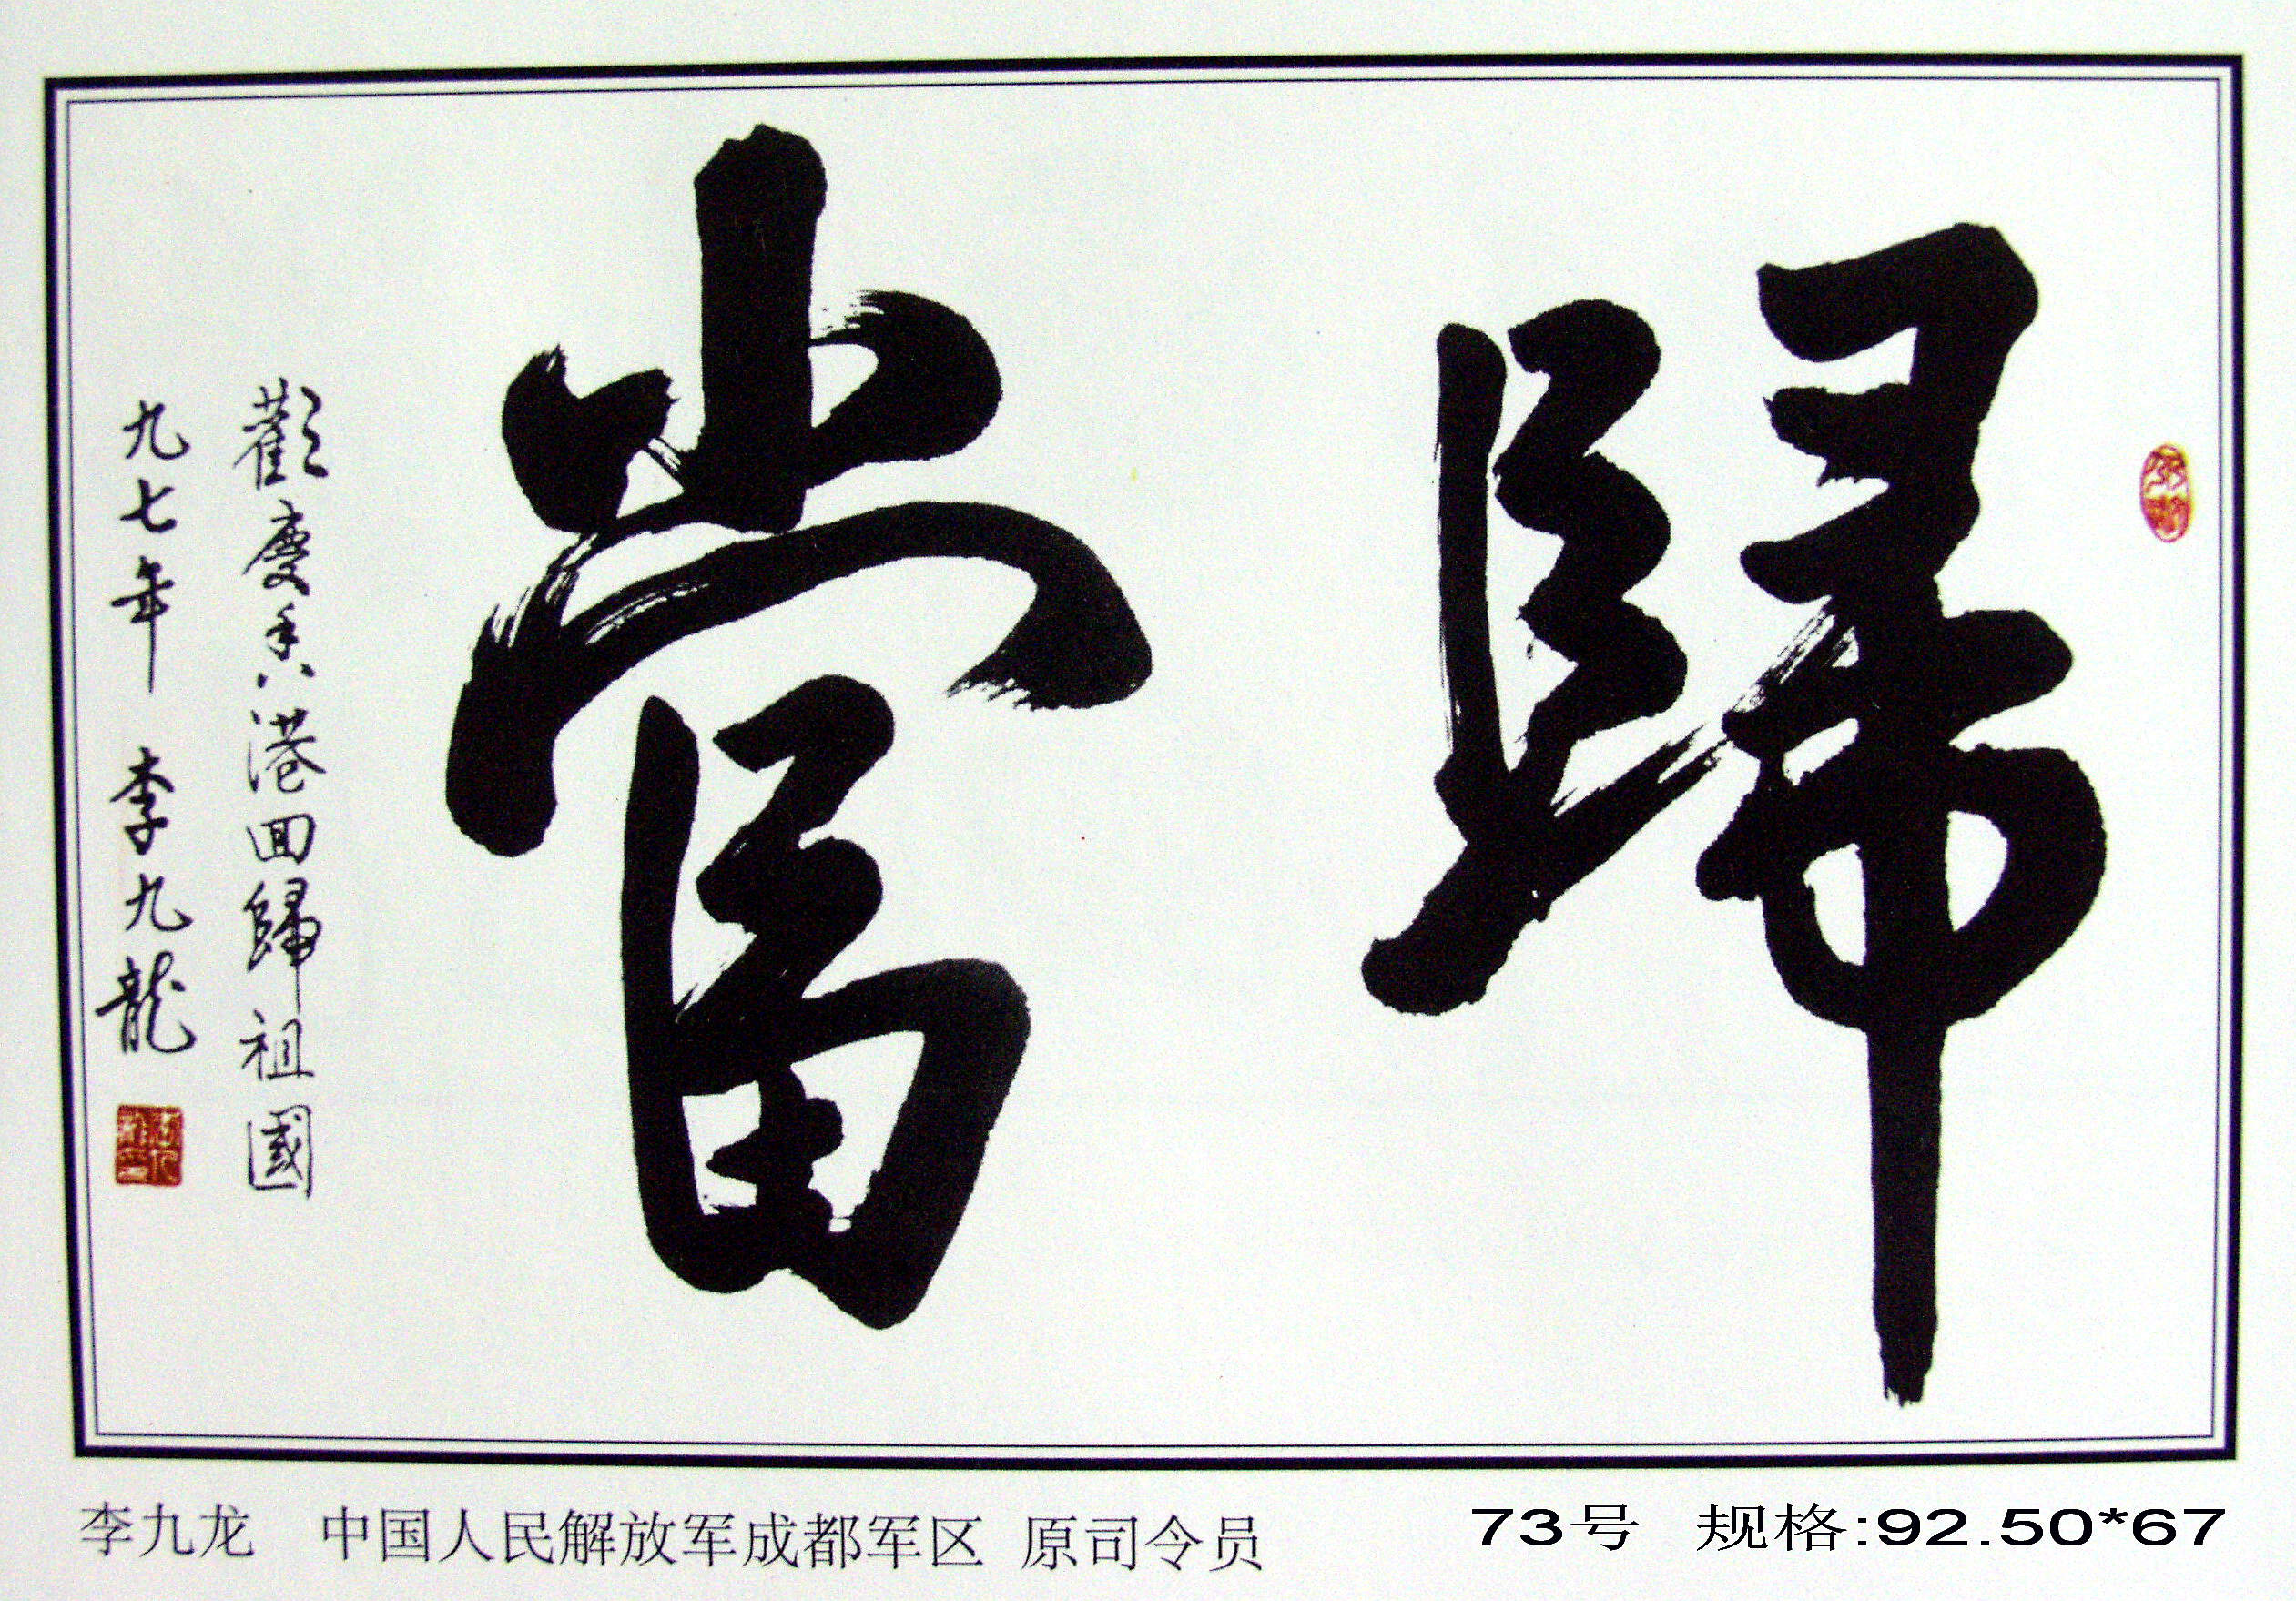 歸當
歡慶香港囬歸祖國
九七年 李九龍
李九龙 中国人民解放军成都军区 原司令员
73号 规格:92.50*67